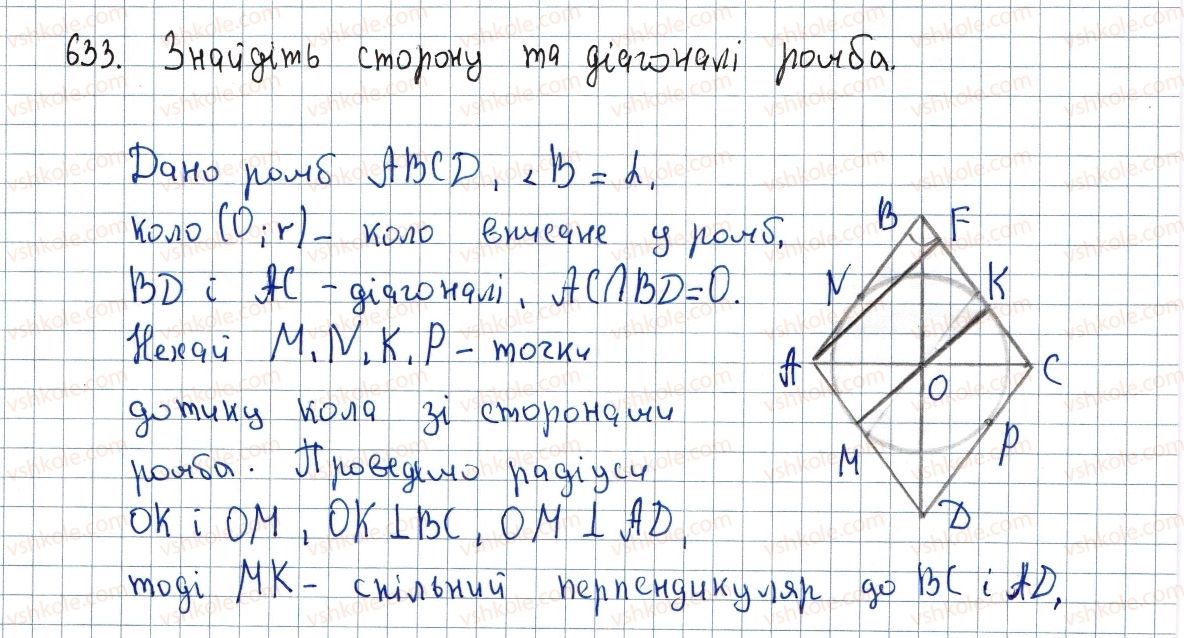 633. Знайдіть сторону та діагоналі ромба.
Дано ромб ABCD, ∠B = α,
коло (O; r) – коло вписане у ромб,
BD і AC – діагоналі, AC∩BD=O.
Нехай M, N, K, P – точки
дотику кола зі сторонами
ромба. Проведемо радіуси
OK і OM, OK⊥BC, OM⊥AD,
тоді MK – спільний перпендикуляр до BC і AD,
B F
N K
A O C
M P
D
vshkole.com